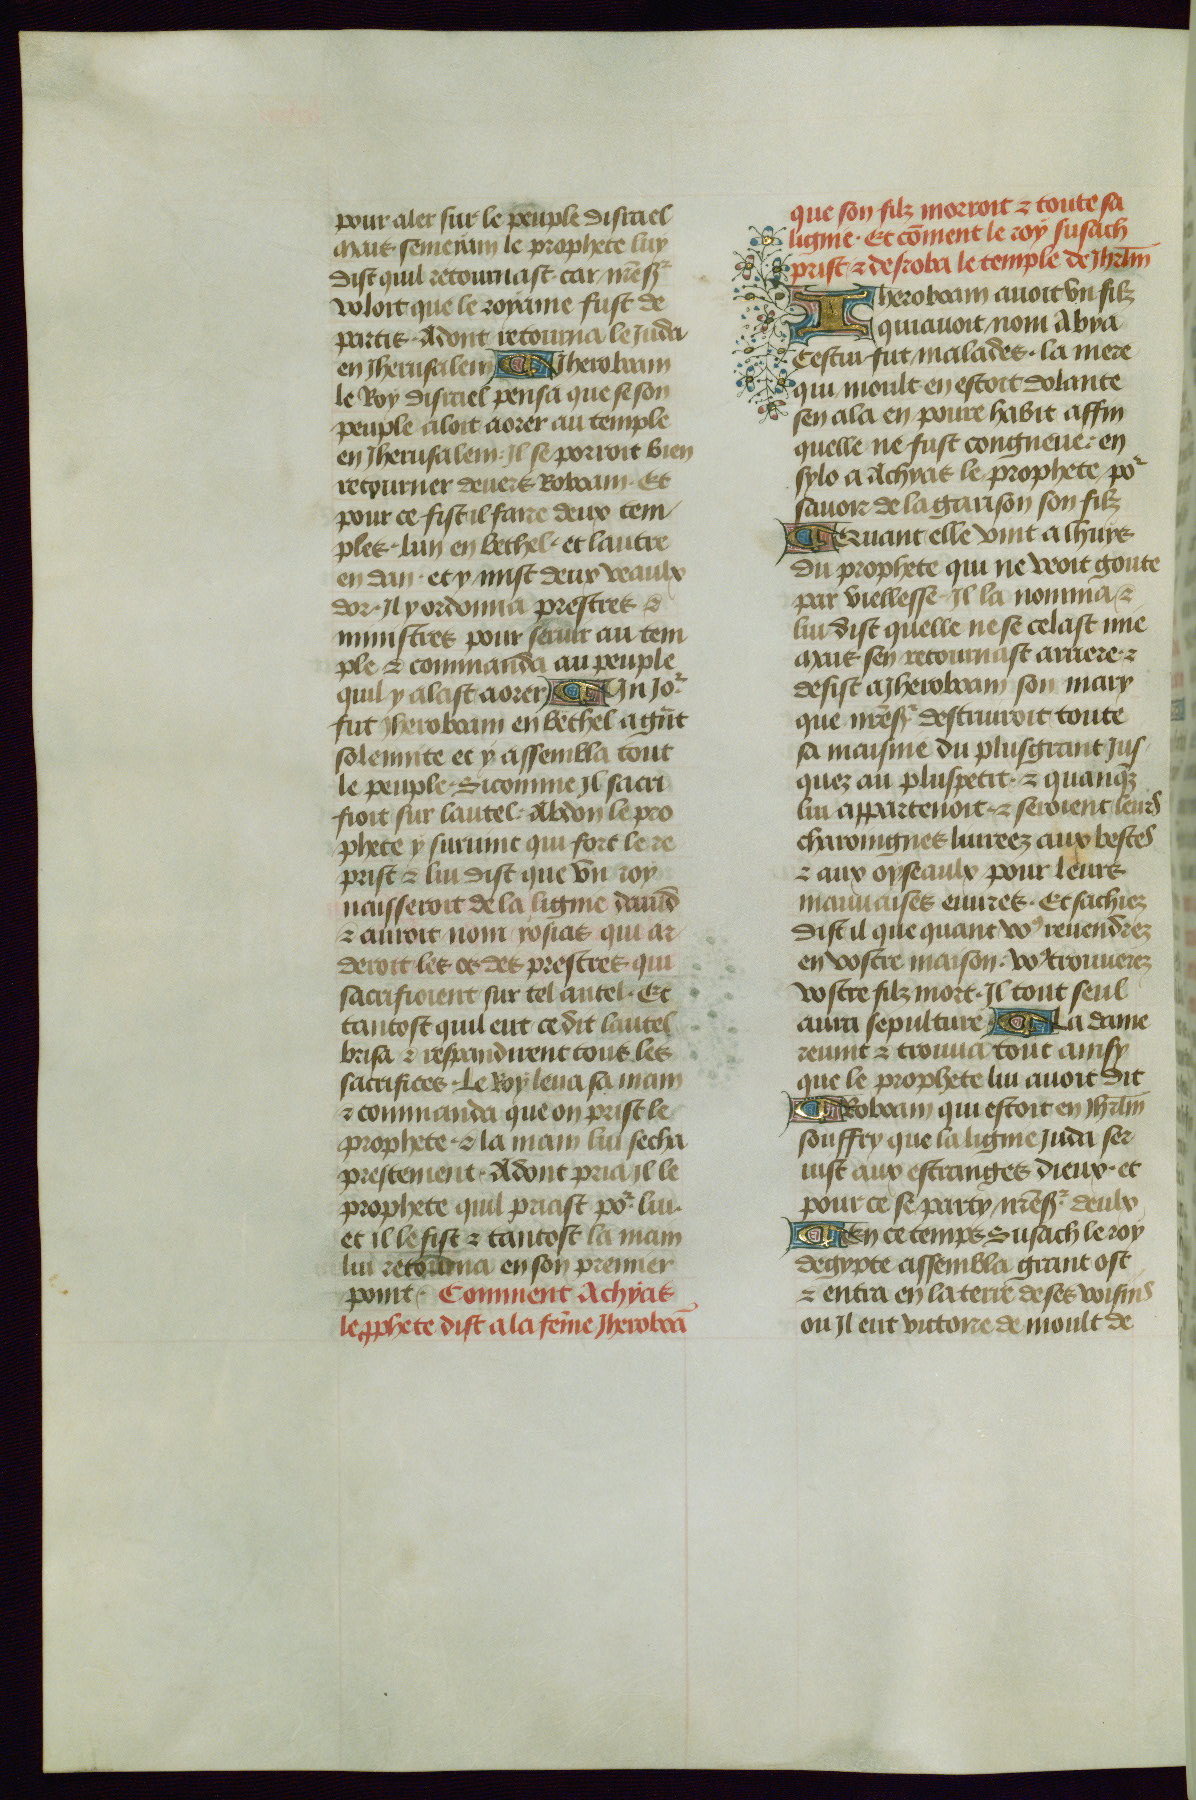 pour aler sur le peuple disrael
Mais semeiam le prophete luy
dist quil retournast car nr̃e sgr̃
voloit que le royame fust de
partis. Adont retourna le Juda
en Jherusalem ¶ Jheroboam
le Roy disrael pensa que se son
peuple aloit aorer au temple
en Jherusalem. Il se porroit bien
retourner deuers Roboam. Et
pour ce fist il faire deux tem
ples. lun en bethel. et lautre
en dan. et y mist deux veaulx
dor. Il y ordonna prestres ⁊
ministres pour seruir au tem
ple ⁊ commanda au peuple
quil y alast aorer ¶ Un Jor
fut Jheroboam en bethel a gñt
solemnite et y assembla tout
le peuple. Sicomme Il sacri
fioit sur lautel. Abdon le pro
phete y suruint qui fort le re
prist ⁊ lui dist que vn roy
naisseroit de la lignie dauid
⁊ auroit nom yosias qui ar
deroit les os des prestres qui
sacrifioient sur tel autel. Et
tantost quil eut ce dit lautel
brisa ⁊ respandirent tous les
sacrifices. Le Roy leua sa main
⁊ commanda que on prist le
prophete. ⁊ la main lui secha
prestement. Adont pria Il le
prophete quil priast por lui.
et il le fist ⁊ tantost la main
lui retourna en son premier
point. Comment Achyas
le p̱phete dist a la fem̃e Jheroboã
que son filz morroit ⁊ toute sa
lignie. Et cõment le roy susach
prist ⁊ desroba le temple de Jhrlm̃
Iheroboam auoit vn filz
qui auoit nom Abya
Cestui fut malades. la mere
qui moult en estoit dolante
sen ala en poure habit affin
quelle ne fust congneue. en
sylo a Achyas le prophete por
sauoir de la garison son filz
¶ Quant elle vint a lhuys
du prophete qui ne veoit goute
par viellesse. Il la nomma ⁊
lui dist quelle ne se celast mie
Mais sen retournast arriere ⁊
desist a Jheroboam son mary
que nr̃e sgr̃ destruiroit toute
sa maisnie du plusgrant Jus
quez au pluspetit. ⁊ quanq̃z
lui appartenoit. ⁊ seroient leurs
charoingnes liureez aux bestes
⁊ aux oyseaulx pour leurs
mauuaises euures. Et sachiez
dist il que quant vo⁹ reuendrez
en vostre maison. vo⁹ trouuerez
vostre filz mort. Il tout seul
aura sepulture ¶ La dame
reuint ⁊ trouua tout ainsy
que le prophete lui auoit dit
¶ Roboam qui estoit en Jhrlm̃
souffry que la lignie Juda ser
uist aux estranges dieux. et
pour ce se party nr̃e sgr̃ deulx
¶ En ce temps Susach le roy
degypte assembla grant ost
⁊ entra en la terre de ses voisins
ou Il eut victoire de moult de